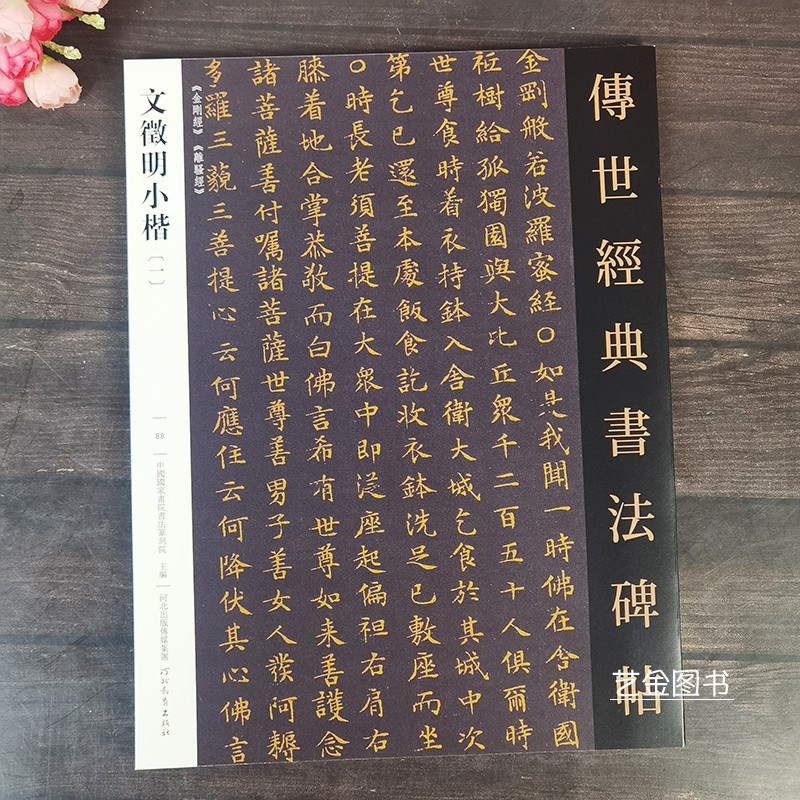 傳世經典書法碑帖
金剛般若波羅蜜經〇如是我聞一時佛在舍衛國
祇樹給孤獨園與大比丘眾千二百五十人俱爾時
世尊食時着衣持鉢入舍衛大城乞食於其城中次
第乞已還至本處飯食訖收衣鉢洗足已敷座而坐
〇時長老須菩提在大眾中即從座起偏袒右肩右
膝着地合掌恭敬而白佛言希有世尊如来善護念
諸菩薩善付囑諸菩薩世尊善男子善女人發阿耨
多羅三藐三菩提心云何應住云何降伏其心佛言
《金剛經》《離騷經》
文徵明小楷〔一〕
88
中國國家畫院書法篆刻院 主編
河北出版傳媒集團
河北教育出版社
艺金图书